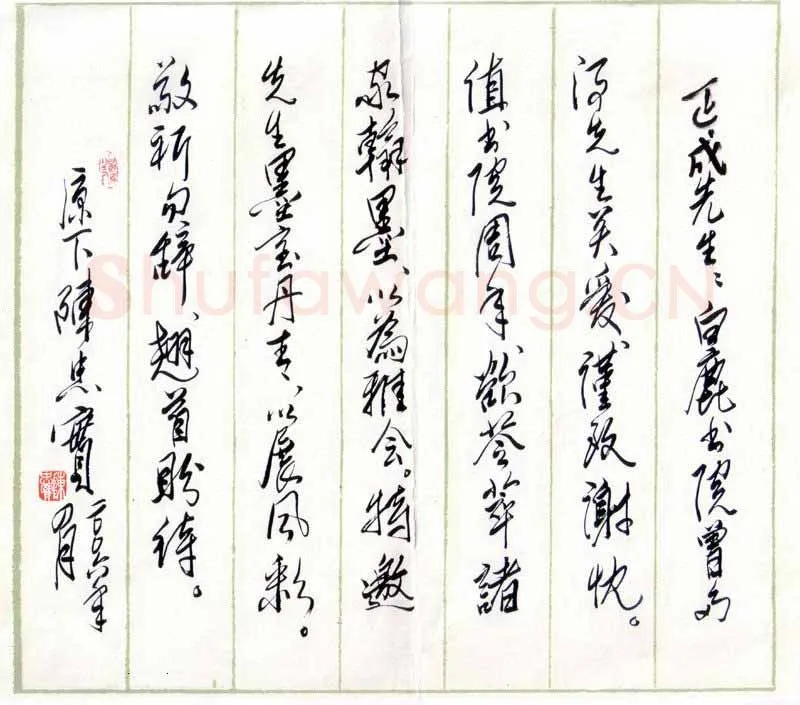 正成先生：白鹿书院曾
得先生关爱、謹致謝忱。
值书院周年、欲荟萃諸
家翰墨、以為雅会。特邀
先生墨宝丹青、以展风彩。
敬祈勿辞、翘首盼待。
原下陳忠實
二〇〇六年
四月
Shufawang.CN